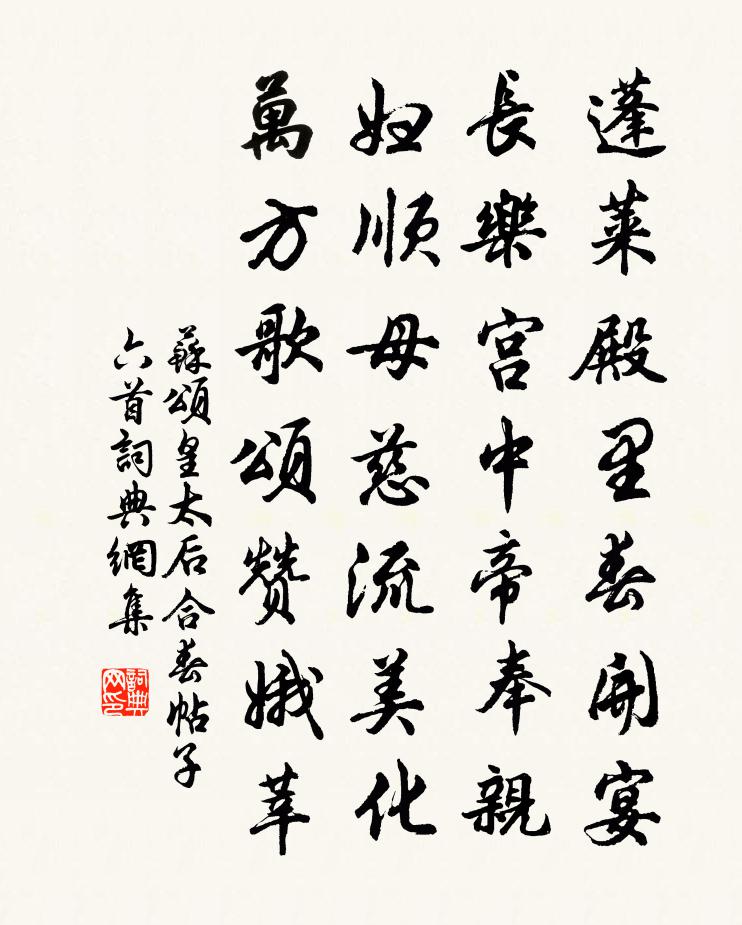 蓬莱殿里春開宴
長樂宮中帝奉親
婦順母慈流美化
萬方歌頌赞娥莘
蘇頌皇太后合春帖子
六首詞典網集
詞典网印